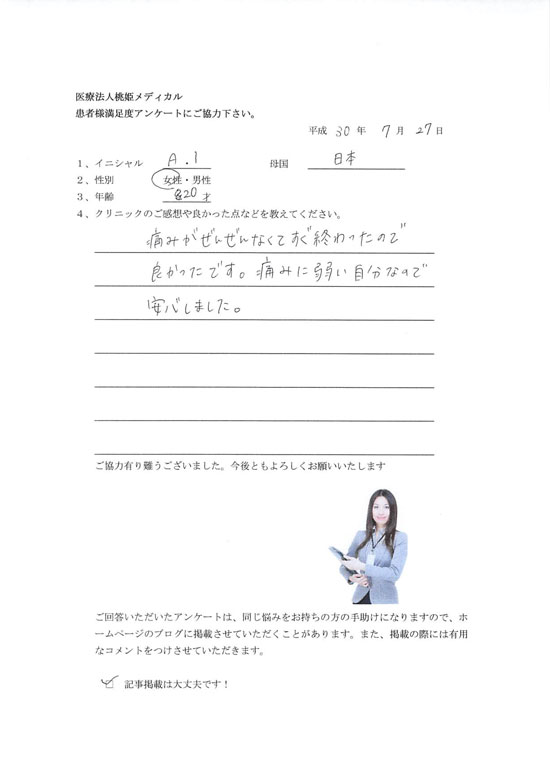 医療法人桃姫メディカル
患者様満足度アンケートにご協力下さい。
平成 30 年 7 月 27 日
1、イニシャル A.I 母国 日本
2、性別 女性・男性
3、年齢 20 才
4、クリニックのご感想や良かった点などを教えてください。
痛みがぜんぜんなくてすぐ終わったので
良かったです。痛みに弱い自分なので
安心しました。
ご協力有り難うございました。今後ともよろしくお願いいたします
ご回答いただいたアンケートは、同じ悩みをお持ちの方の手助けになりますので、ホ
ームページのブログに掲載させていただくことがあります。また、掲載の際には有用
なコメントをつけさせていただきます。
☑ 記事掲載は大丈夫です！